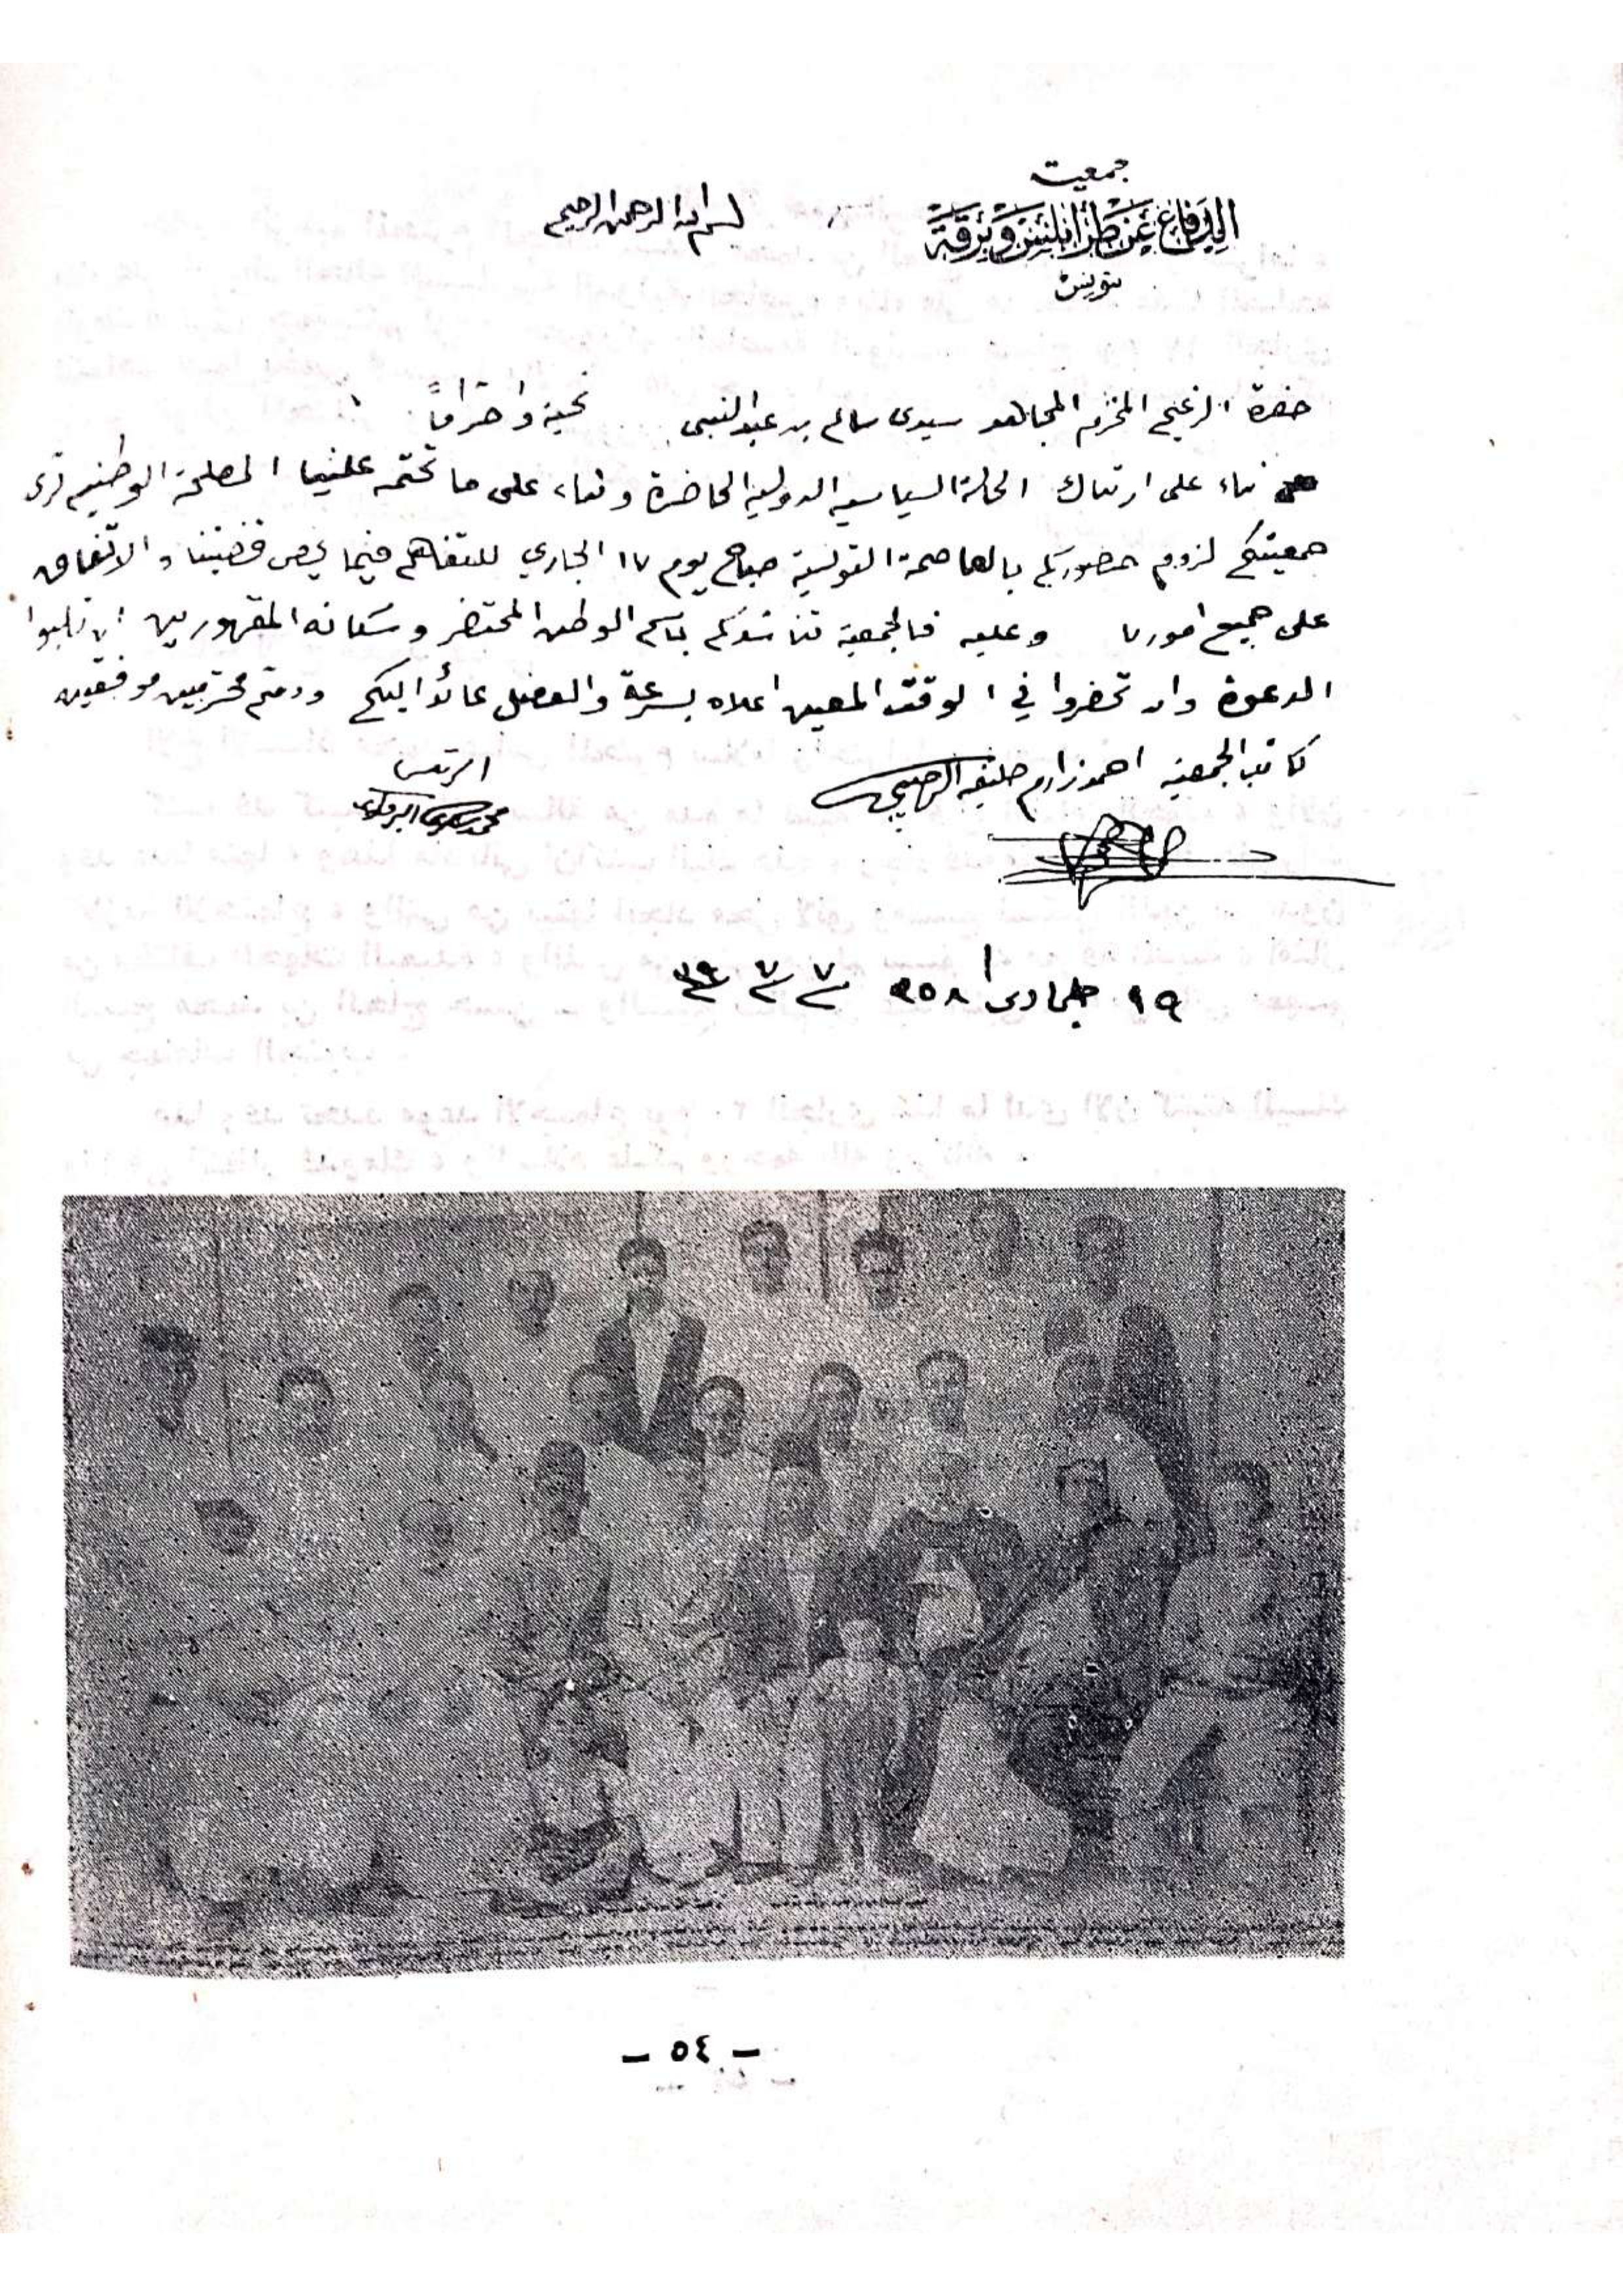 جمعية
الدفاع عن طرابلس وبرقة
بتونس
بسم الله الرحمن الرحيم
حضرة الزعيم المحترم المجاهد سيدى سالم بن عبد النبى تحية واحتراماً
بناء على ارتباك الحالة السياسية الدولية الحاضرة وبناء على ما تحتمه علينا المصلحة الوطنية ترى
جمعيتكم لزوم حضوركم بالعاصمة التونسية صباح يوم ١٧ الجاري للتفاهم فيما يخص قضيتنا والاتفاق
على جميع امورنا وعليه فالجمعية تناشدكم باسم الوطن المحتضر وسكانه المقهورين ان تلبوا
الدعوة وان تحضروا في الوقت المعين اعلاه بسرعة والفضل عائد اليكم ودمتم محترمين موفقين
كاتب الجمعية احمد زارم خليفه الرئيس
محمد
١٩ جمادى ا ٣٥٨ ٧ ٧ ٣٩
- ٥٤ -